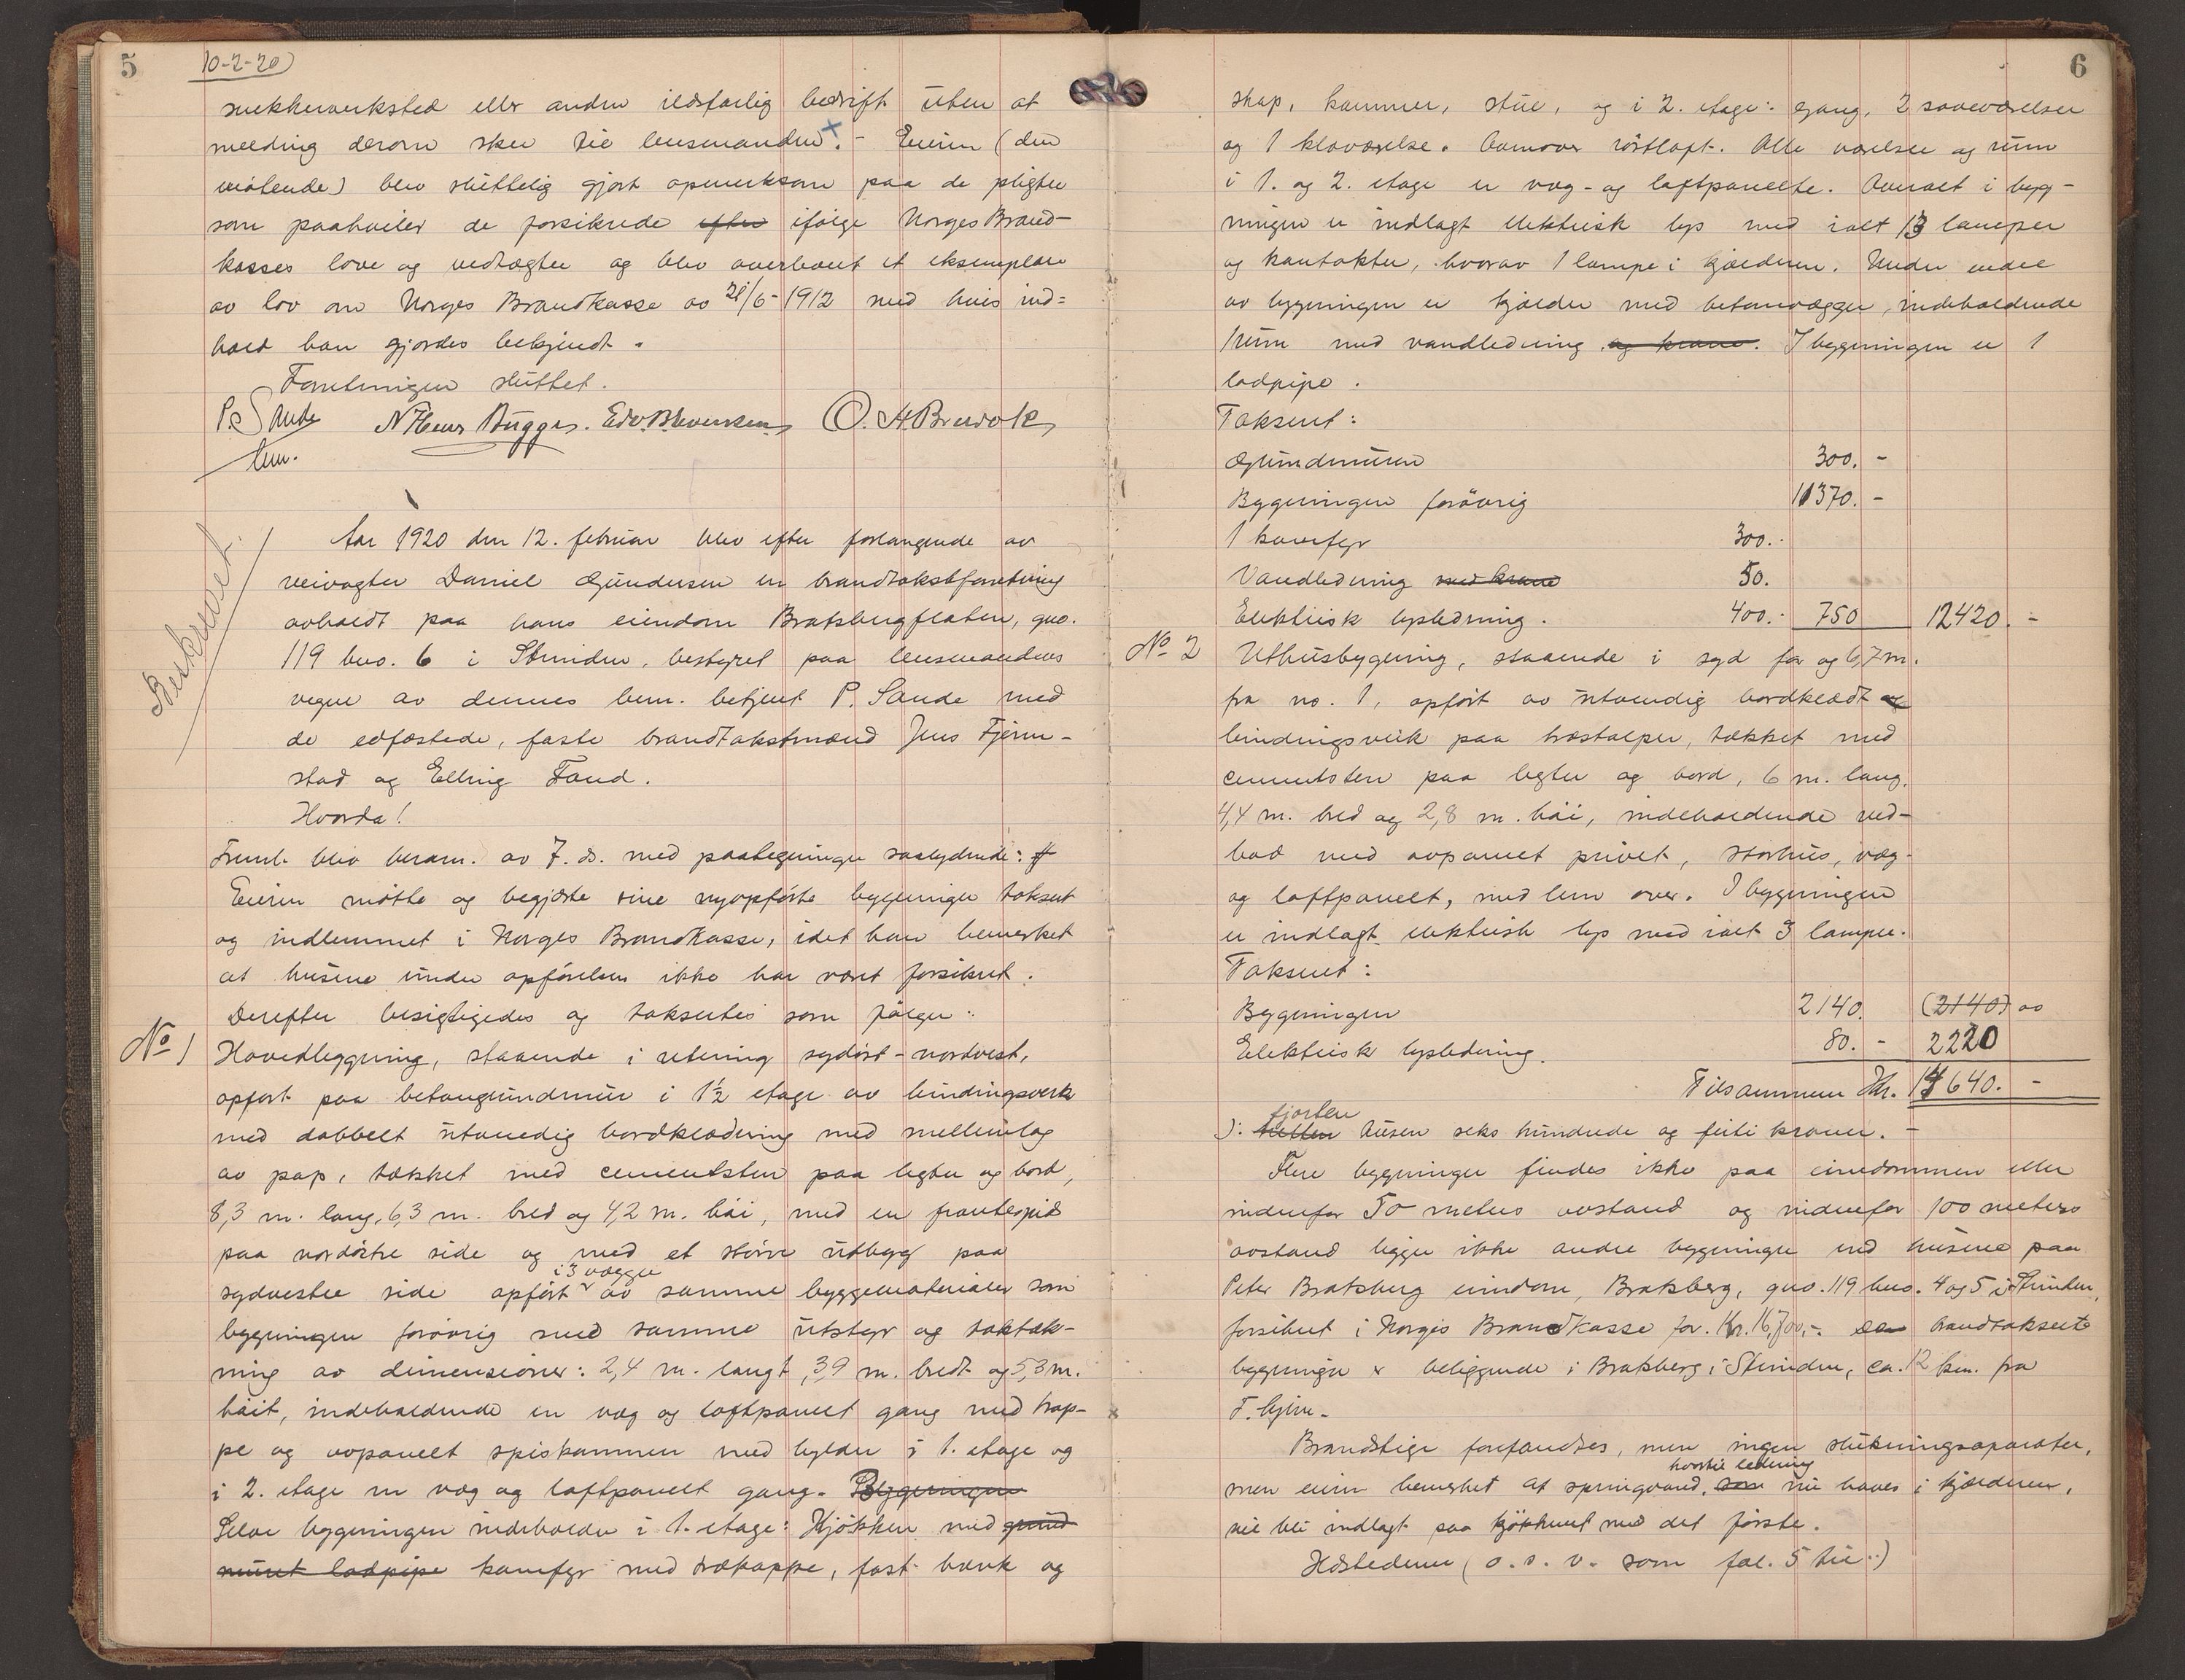 5
10-2-20
snekkerverksted eller anden ildsfarlig bedrift uten at
melding derom sker til lensmanden. - Eieren (den
møtende) blev sluttelig gjort opmerksom paa de pligter
som paahviler de forsikrede efter ifølge Norges Brand-
kasses love og vedtægter og blev overlevert et eksemplar
av lov om Norges Brandkasse av 21/6-1912 med hvis ind=
hold han gjordes bekjendt.
Forretningen sluttet.
P. Sande
lm.
O. H. Brevok
Beskrevet.
Aar 1920 den 12. februar blev efter forlangende av
veivogter Daniel Gundersen en brandtakstforretning
avholdt paa hans eiendom Bratsbergflaten, gno.
119 bno. 6 i Strinden, bestyret paa lensmandens
vegne av dennes bem. betjent P. Sande med
de edfæstede, faste brandtakstmænd Jens Fjerm-
stad og Elling Foud.
Hvorda!
Fremb. blev beram. av 7. ds. med paategninger saalydende: #
Eieren møtte og begjærte sine nyopførte bygninger taksert
og indlemmet i Norges Brandkasse, idet han bemerket
at husene under opførelsen ikke har været forsikret.
Derefter besigtigedes og taksertes som følger:
No 1
Hovedbygning, staaende i retning sydøst-nordvest,
opført paa betongrundmur i 1½ etage av bindingsverk
med dobbelt utvendig bordklædning med mellemlag
av pap, tækket med cementsten paa legter og bord,
8,3 m. lang, 6,3 m. bred og 4,2 m. høi, med en frontespis
paa nordøstre side og med et større utbygg paa
i 3 vægge
sydvestre side opført av samme byggematerialer som
bygningen forøvrig med samme utstyr og taktæk-
ning av dimensioner: 2,4 m. langt, 3,9 m. bredt og 5,3 m.
høit, indeholdende en væg og loftpanelt gang med trap-
pe og uopanelt spiskammer med hylder i 1. etage og
i 2. etage en væg og loftpanelt gang. Bygningen
Selve bygningen indeholder i 1. etage: Kjøkken med grund
muret lodpipe komfyr med trækappe, fast bænk og
6
skap, kammer, stue, og i 2. etage: gang, 2 soveværelser
og 1 kloværelse. Ovenover røstloft. Alle værelser og rum
i 1. og 2. etage er væg- og loftpanelte. Overalt i byg-
ningen er indlagt elektrisk lys med ialt 13 lamper
og kontakter, hvorav 1 lampe i kjælderen. Under endel
av bygningen er kjælder med betonvægger, indeholdende
1 rum med vandledning og krane. I bygningen er 1
lodpipe.
Taksert:
Grundmuren 300. -
Bygningen forøvrig 11370. -
1 komfyr 300. -
Vandledning med krane 50.
Elektrisk lysledning. 400. - 750 12420. -
No 2 Uthusbygning, staaende i syd for og 6,7 m.
fra no. 1, opført av utvendig bordklædt
bindingsverk paa træstolper, tækket med
cementsten paa legter og bord, 6 m. lang,
4,4 m. bred og 2,8 m. høi, indeholdende ved-
bod med avpanelt privet, storhus, væg-
og loftpanelt, med lem over. I bygningen
er indlagt elektrisk lys med ialt 3 lamper.
Taksert:
Bygningen 2140. (2140) oo
Elektrisk lysledning. 80. - 2220
Tilsammen Kr. 14640. -
fjorten
ɔ: tretten tusen seks hundrede og firti kroner. -
Flere bygninger findes ikke paa eiendommen eller
indenfor 50 meters avstand og indenfor 100 meters
avstand ligger ikke andre bygninger end husene paa
Peter Bratsberg eiendom, Bratsberg, gno. 119 bno. 4 og 5 i Strinden,
forsikret i Norges Brandkasse for Kr. 16,700,-. De brandtakserte
bygninger er beliggende i Bratsberg i Strinden, ca. 12 km. fra
T.hjem.
Brandstige forefandtes, men ingen slukningsaparater,
hvortil ledning
men eieren bemerket at springvand, som nu haves i kjælderen,
vil bli indlagt paa kjøkkenet med det første.
Ildstederne (o. s. v. som fol. 5 til:)